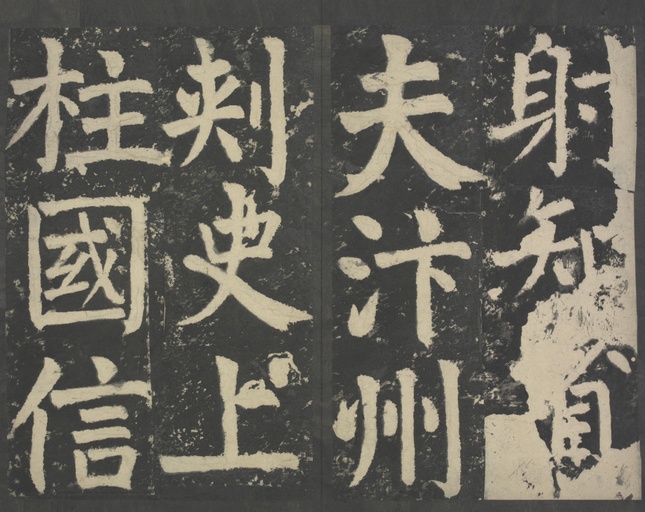 射知省
夫汴州
刾史上
柱國信